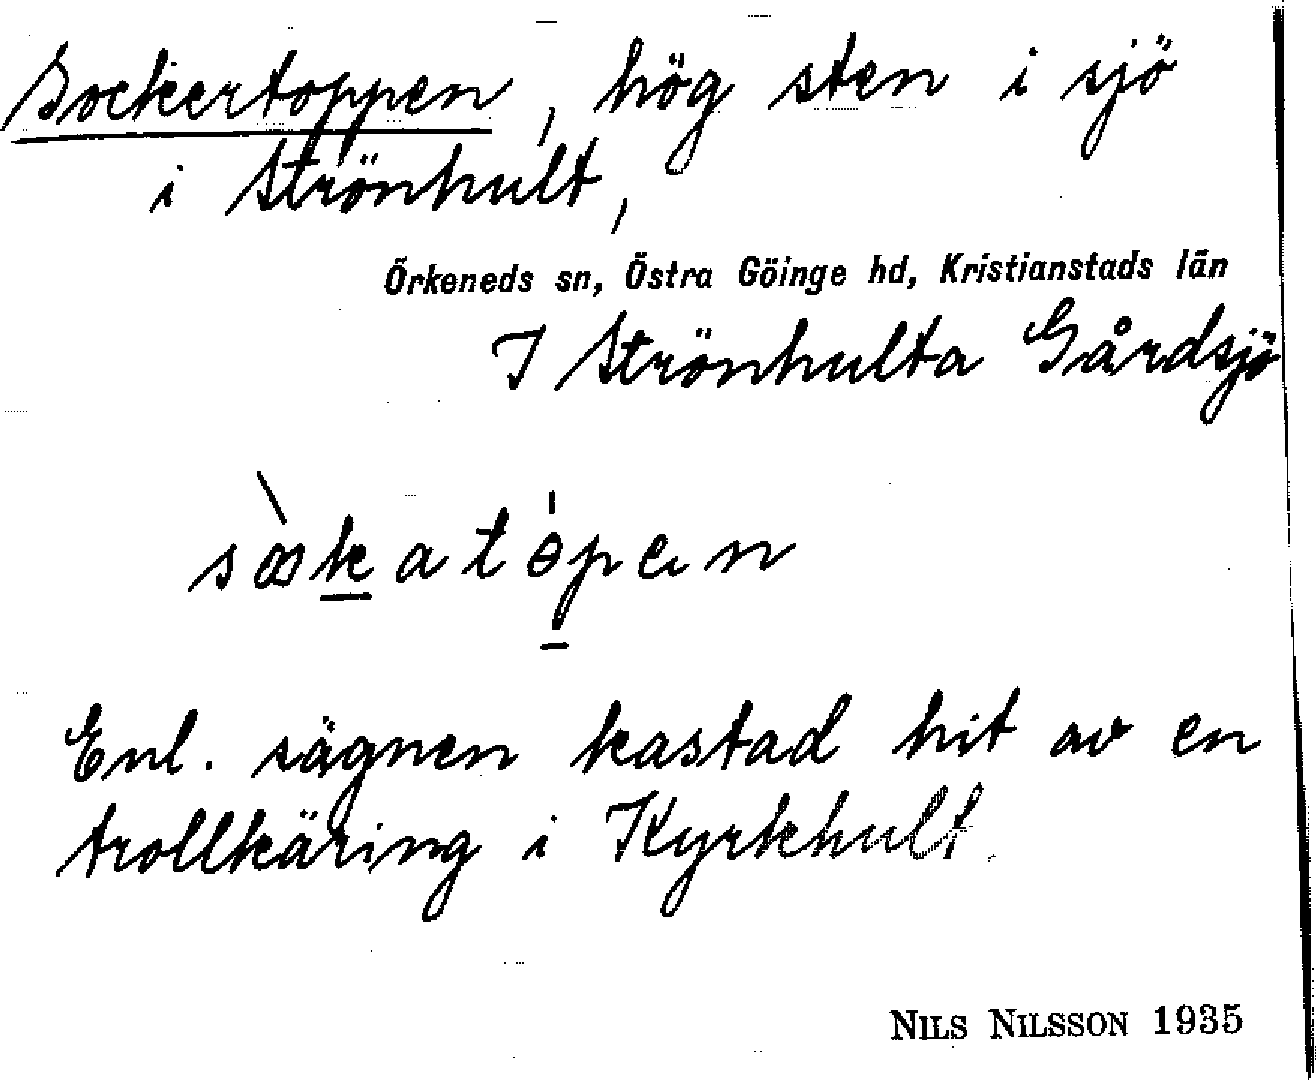 Sockertoppen, hög sten i sjö
i Strönhult,
Örkeneds sn, Östra Göinge hd, Kristianstads län
I Strönhulta Gårdsjö
sòkatɵ́pen
Enl. sägnen kastad hit av en
trollkäring i Kyrkhult.
NILS NILSSON 1935